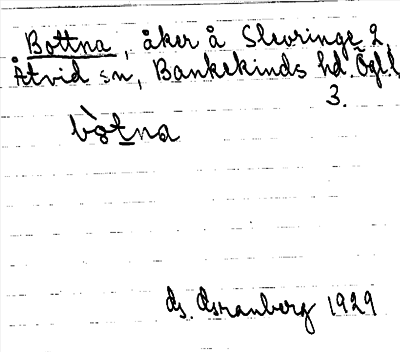 Bottna, åker å Slevringe 2,
Åtvid sn, Bankekinds hd. Ögl.
3.
bòtna
1929